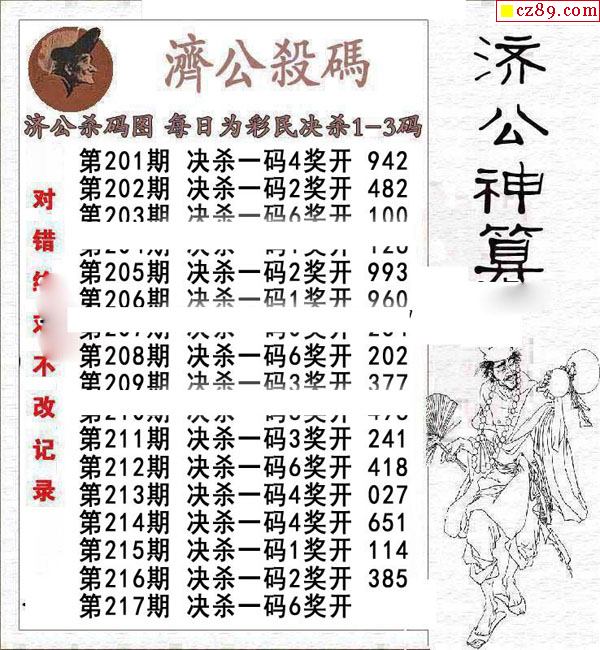 cz89.com
濟公殺碼
济公杀码图 每日为彩民决杀1-3码
第201期 决杀一码4奖开 942
第202期 决杀一码2奖开 482
第203期 决杀一码6奖开 100
第205期 决杀一码2奖开 993
第206期 决杀一码1奖开 960
第208期 决杀一码6奖开 202
第209期 决杀一码3奖开 377
第211期 决杀一码3奖开 241
第212期 决杀一码6奖开 418
第213期 决杀一码4奖开 027
第214期 决杀一码4奖开 651
第215期 决杀一码1奖开 114
第216期 决杀一码2奖开 385
第217期 决杀一码6奖开
对错
不改记录
济公神算